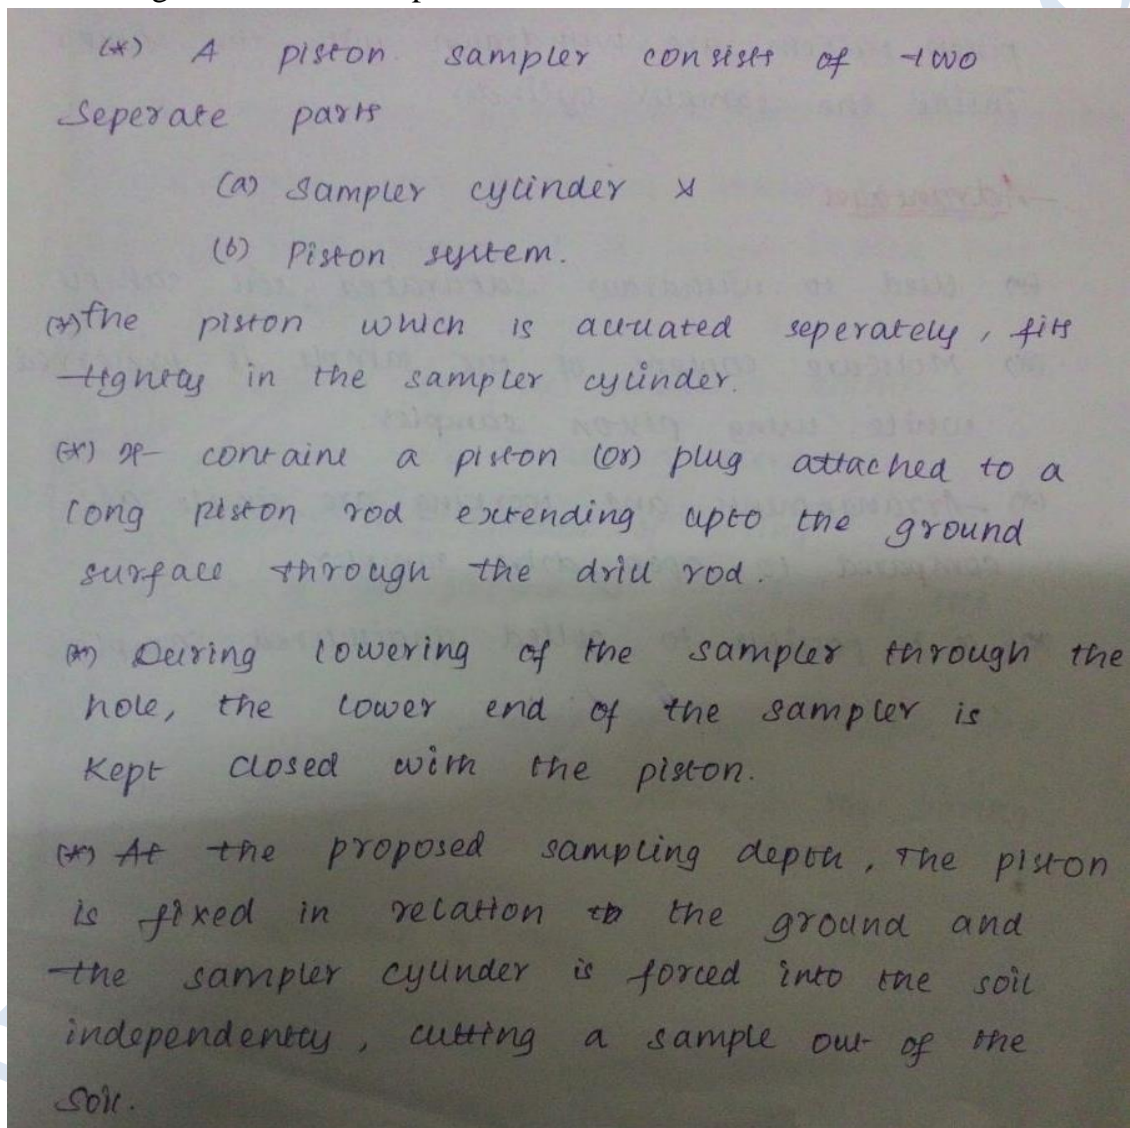 (*) A piston sampler consists of two
Seperate parts
(a) sampler cylinder &
(b) Piston system.
(*) The piston which is actuated seperately, fits
tightly in the sampler cylinder.
(*) It contains a piston (or) plug attached to a
long piston rod extending upto the ground
surface through the drill rod.
(*) During lowering of the sampler through the
hole, the lower end of the sampler is
Kept closed with the piston.
(*) At the proposed sampling depth, The piston
is fixed in relation to the ground and
the sampler cylinder is forced into the soil
independently, cutting a sample out of the
soil.